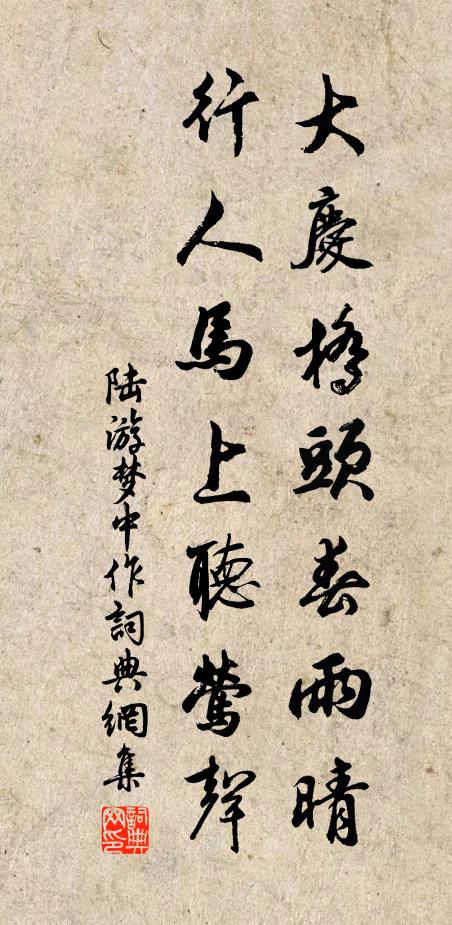 大慶橋頭春雨晴
行人馬上聽鶯聲
陆游梦中作詞典網集
詞典
网印